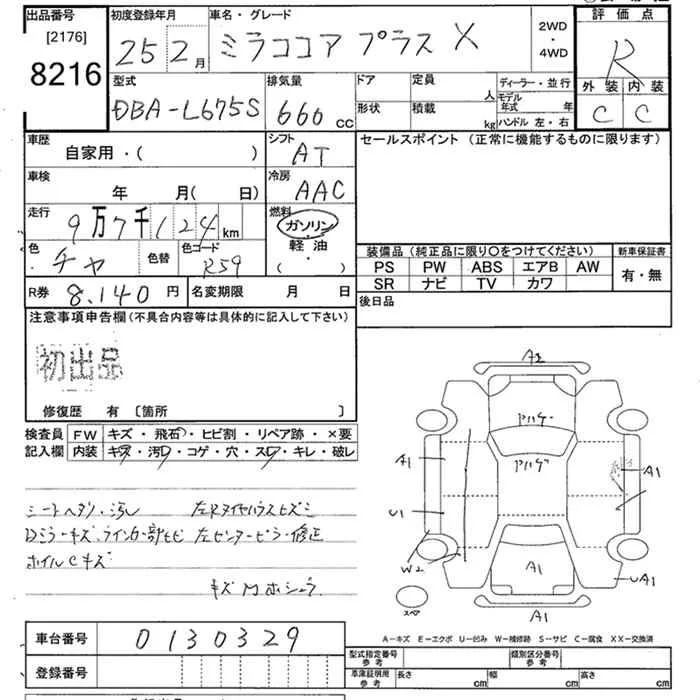 出品番号
[2176]
8216
初度登録年月
25 2月
車名・グレード
ミラココア プラス X
2WD
・
4WD
評価点
R
外装 内装
C C
型式
DBA-L675S
排気量
660 cc
ドア
形状
定員 人
積載 kg
ディーラー・並行
モデル年式 年
ハンドル 左・右
車歴
自家用・( )
シフト
AT
セールスポイント (正常に機能するものに限ります)
車検
年 月( 日)
冷房
AAC
走行
9万7千124km
燃料
ガソリン
軽油
( ・ )
色
チャ
色替
色コード
R59
装備品 (純正品に限り〇をつけてください)
PS PW ABS エアB AW
SR ナビ TV カワ
新車保証書
有・無
R券 8,140円
名変期限 月 日
後日品
注意事項申告欄(不具合内容等は具体的に記入して下さい)
初出品
修復歴 有 〔箇所 〕
検査員記入欄
FW キズ・飛石・ヒビ割・リペア跡・×要
内装 キズ・汚レ・コゲ・穴・スレ・キレ・破レ
シートヘタリ・汚レ
Dミラーキズ
ホイルCキズ
A2
A1
U1
W2
A1
A1
UA1
A1
スペア
A-キズ E-エクボ U-凹み W-補修跡 S-サビ C-腐食 XX-交換済
車台番号
0130329
登録番号
型式指定番号
参考
類別区分番号
参考
車庫証明用
参考
長さ cm
幅 cm
高さ cm